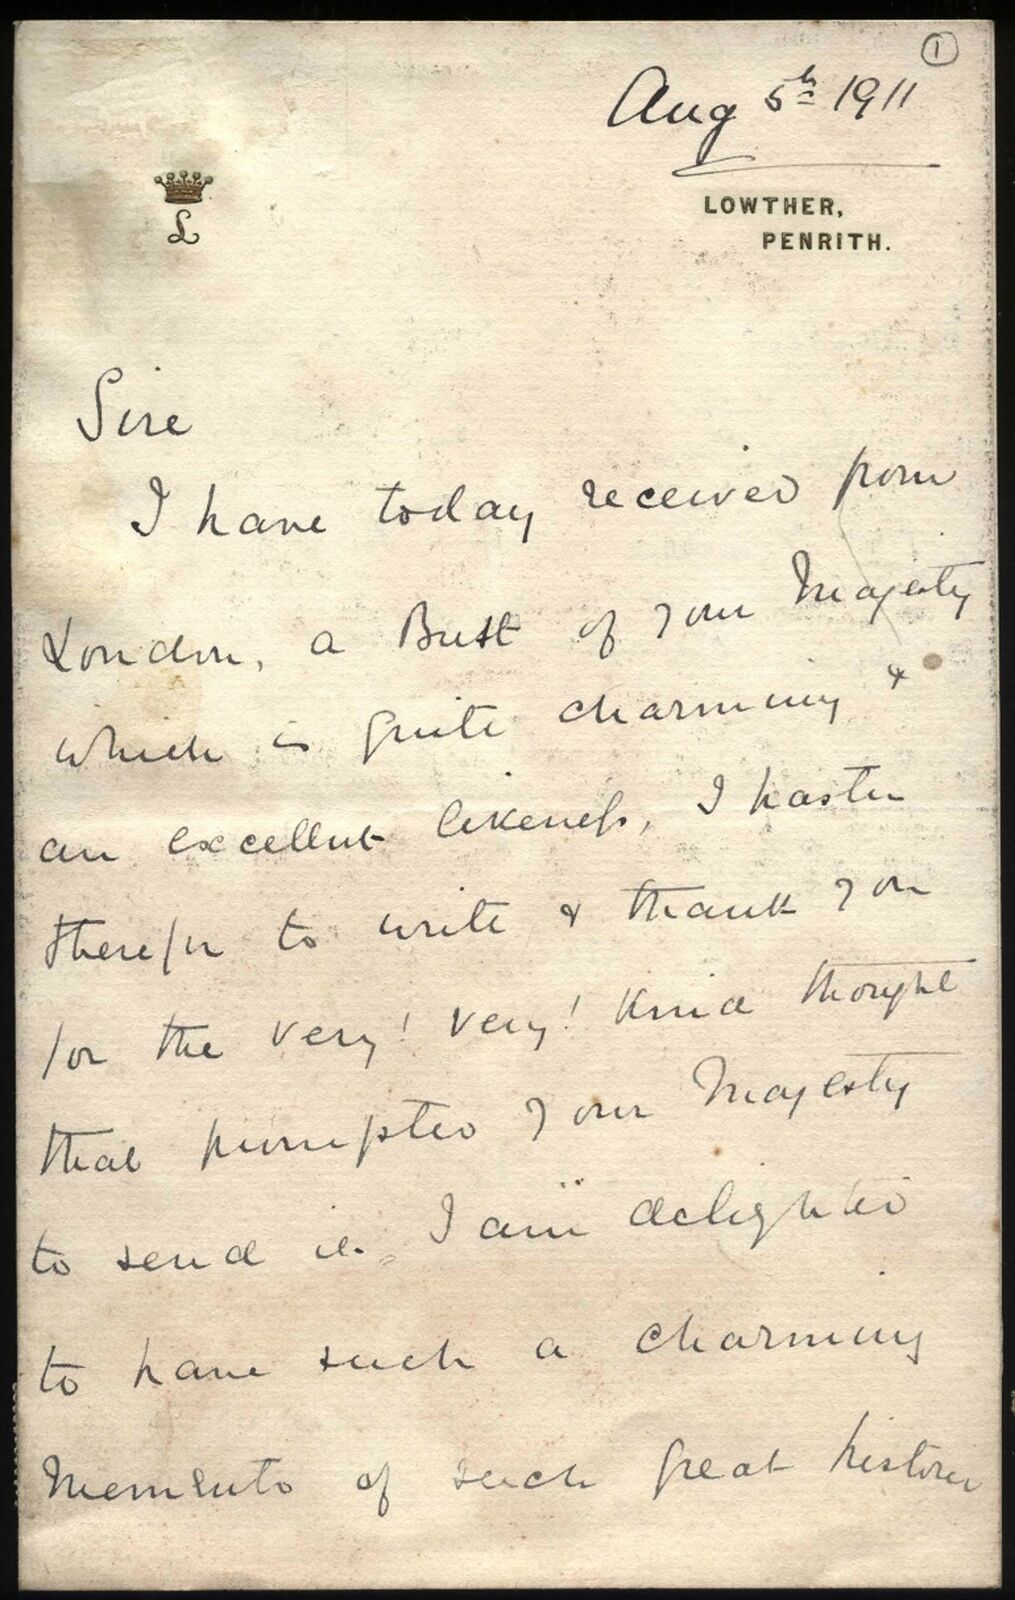 1
Aug 5th 1911
L
LOWTHER,
PENRITH.
Sire
I have today received from
London, a Bust of your Majesty
which is quite charming &
an excellent likeness, I hasten
therefor to write & thank you
for the very! very! kind thought
that prompted your Majesty
to send it. I am delighted
to have such a charming
Memento of such great